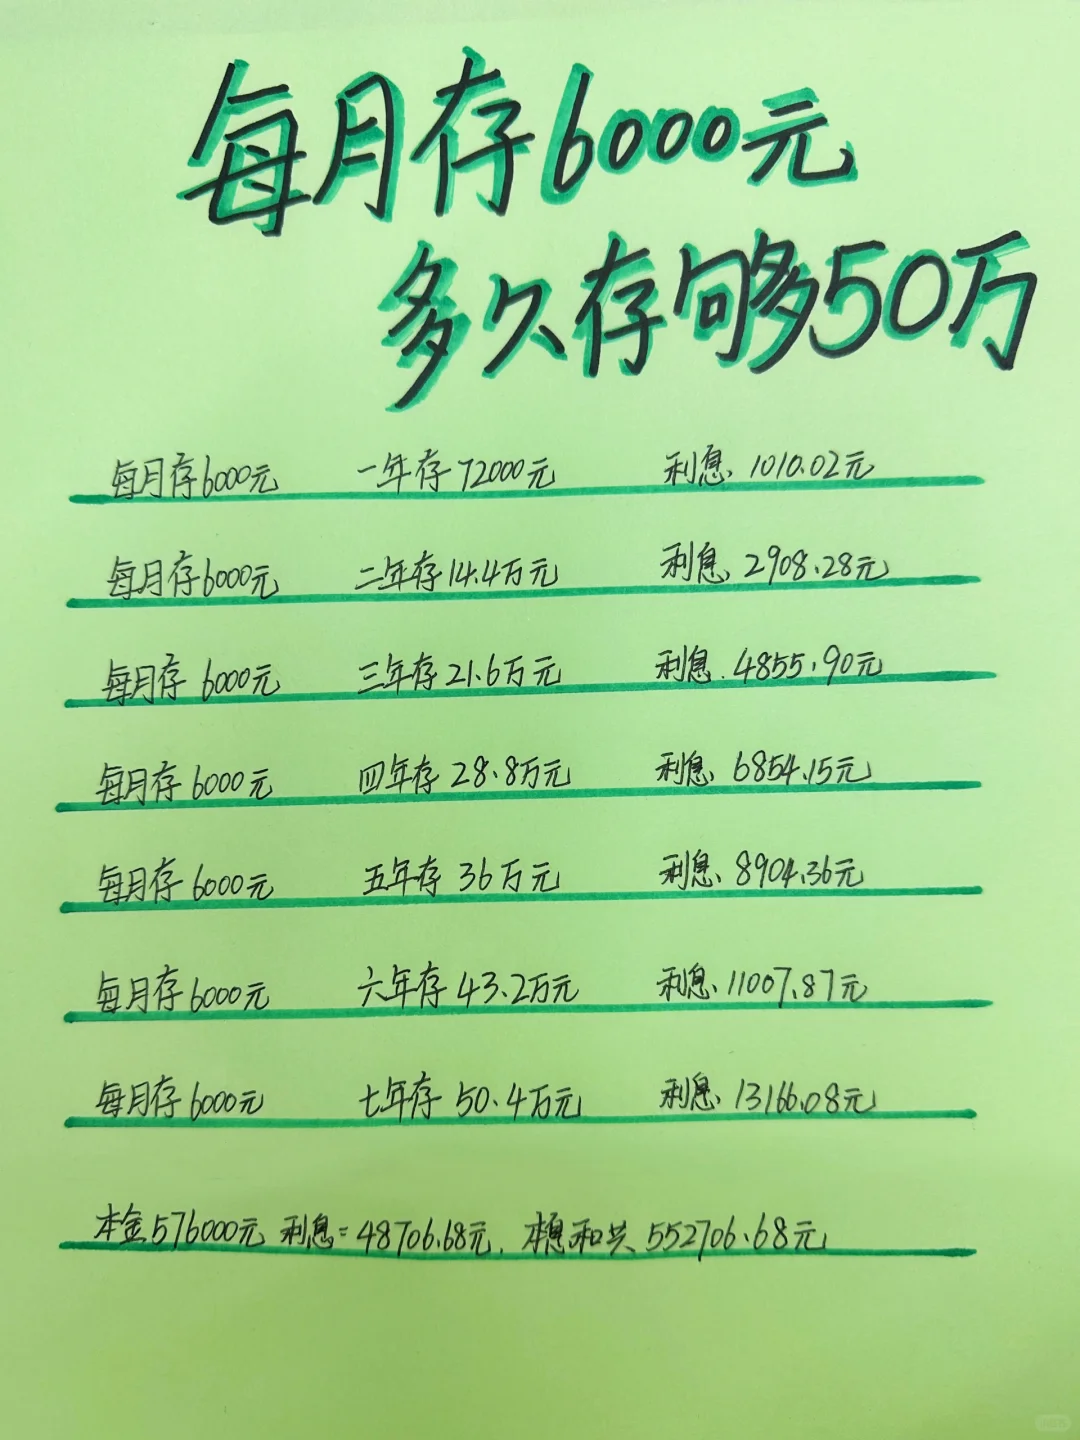 每月存6000元
多久存够50万
每月存6000元 一年存72000元 利息、1010.02元
每月存6000元 二年存14.4万元 利息、2908.28元
每月存6000元 三年存21.6万元 利息.4855.90元
每月存6000元 四年存28.8万元 利息、6854.15元
每月存6000元 五年存36万元 利息、8904.36元
每月存6000元 六年存43.2万元 利息、11007.87元
每月存6000元 七年存50.4万元 利息、13166.08元
本金576000元 利息=48706.68元. 本息和共552706.68元